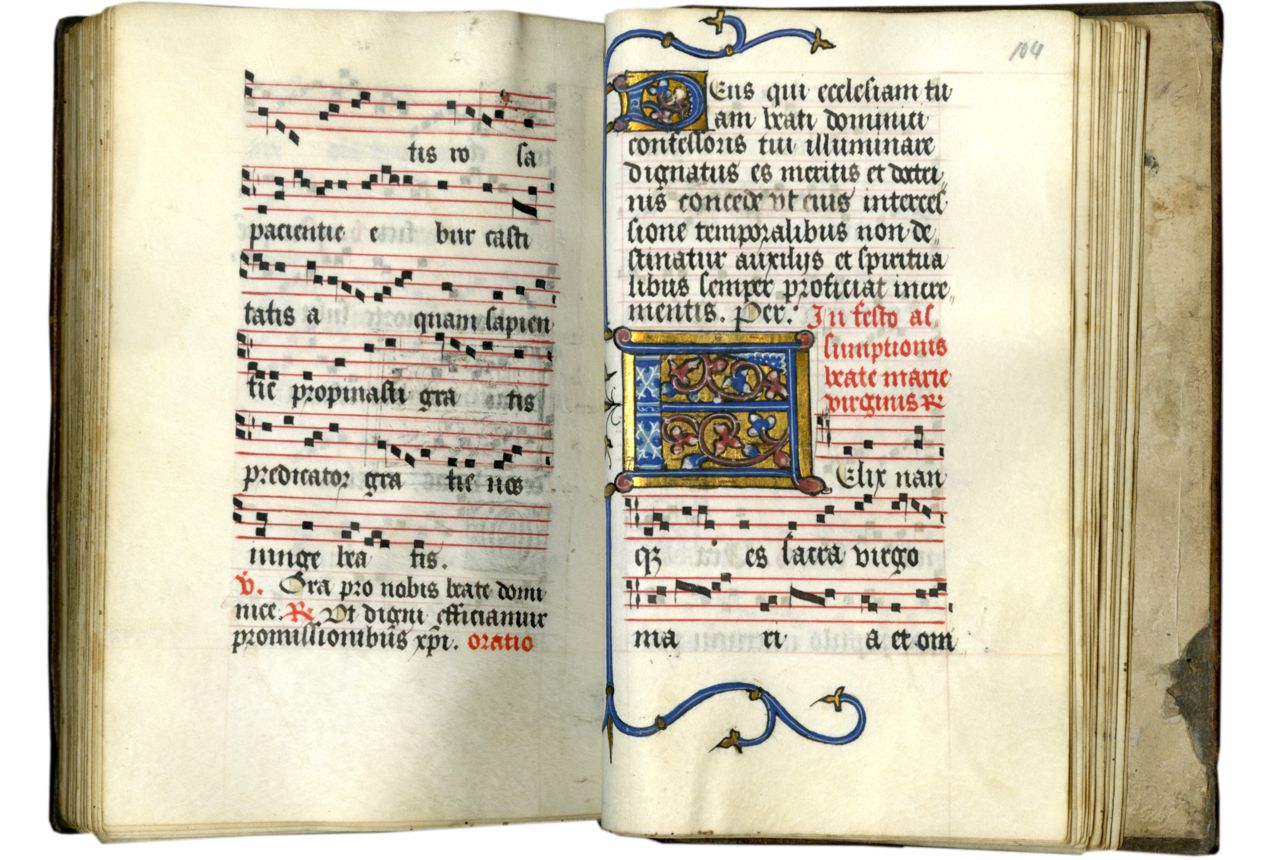 tis ro sa
pacientie e bur casti
tatis a quam sapien
tie propinasti gra tis
predicator gra tie nos
iunge bea tis.
V. Ora pro nobis beate domi
nice. R Ut digni efficiamur
promissionibus xpi. oratio
104
Deus qui ecclesiam tu
am beati dominici
confessoris tui illuminare
dignatus es meritis et doctri
nis concede vt eius interces
sione temporalibus non de„
stinatur auxilijs et spiritua
libus semper proficiat incre„
mentis. Per. In festo as„
sumptionis
beate marie
virginis R
Felix nan
q3 es sacra virgo
ma ri a et om